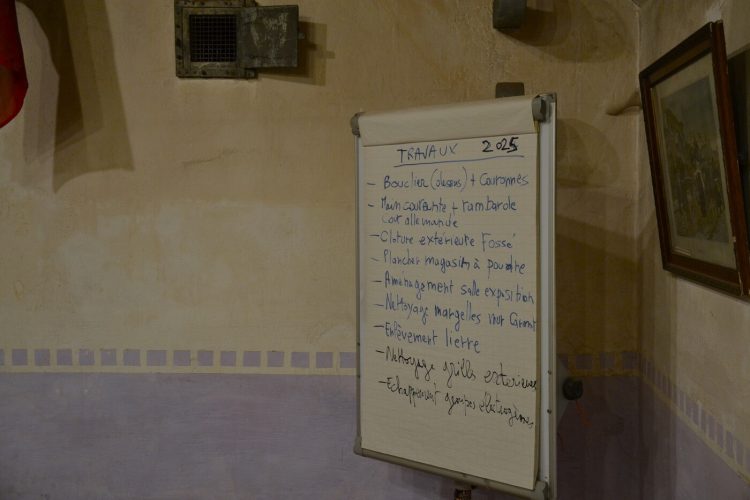 TRAVAUX 2025
- Bouclier (dessus) + Couronnes
- Main courante + rambarde
cour allemande
- Cloture extérieure Fossé
- Plancher magasin à poudre
- Aménagement salle exposition
- Nettoyage margelles cour
- Enlèvement lierre
- Nettoyage grilles exterieures
- Echappement groupes électrogenes